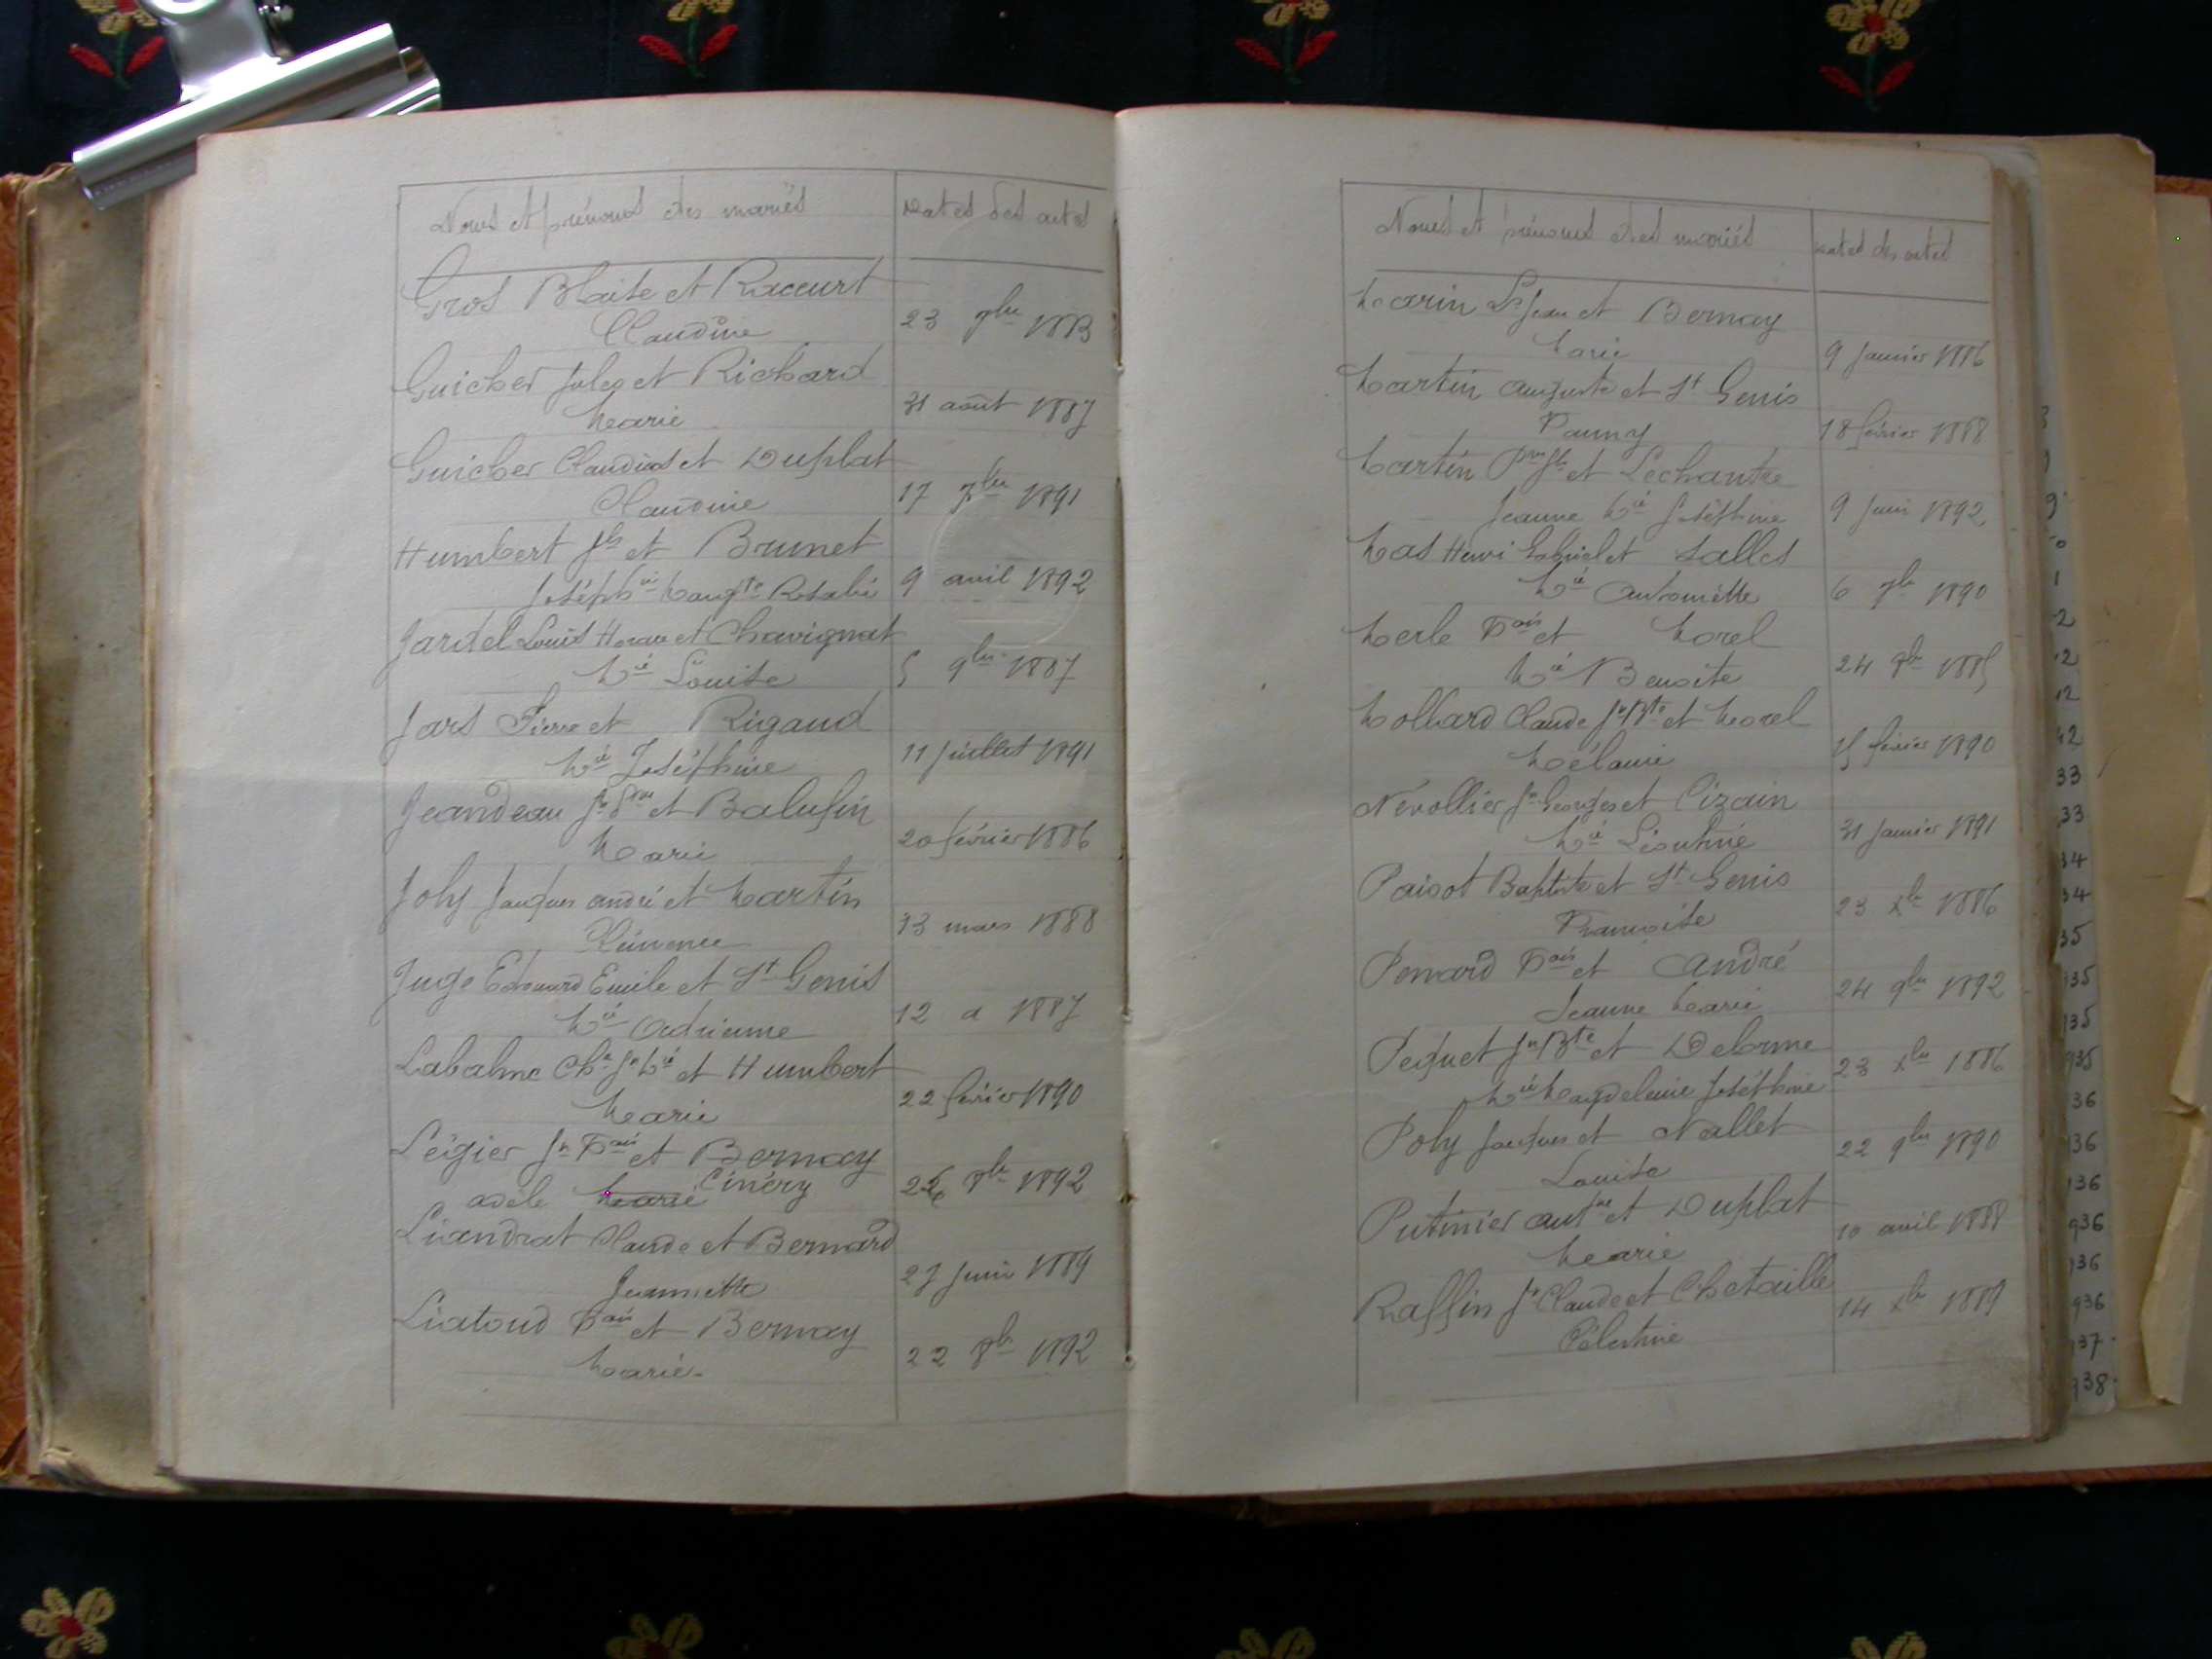 Noms et prénoms des mariés
Dates des actes
Gros Blaise et Raccurt
Claudine
23 9bre 1883
Guicher Jules et Richard
Marie
31 août 1887
Guicher Claudius et Duplat
Claudine
17 7bre 1891
Humbert Jh et Brunet
Joséphine Margte Rosalie
9 avril 1892
Jardel Louis et Chavignat
Mie Louise
5 9bre 1887
Jars Pierre et Rigaud
Mie Joséphine
11 Juillet 1891
Jeandeau Jn et Balufin
Marie
20 février 1886
Joly Jacques andré et Martin
Clémence
13 mars 1888
Juge Edouard Emile et St Genis
Mie Adrienne
12 1887
Labalme et Humbert
Marie
22 février 1890
Légier Jn Fois et Bernay
adèle Marie Cinéry
26 8bre 1892
Liandrat Claude et Bernard
Jeannette
27 Juin 1889
Liatoud Fois et Bernay
Marie
22 8bre 1892
Noms et prénoms des mariés
Dates des actes
Marin Jean et Bernay
Marie
9 Janvier 1886
Martin Auguste et St Genis
Fanny
18 février 1888
Martin et Lechantre
Jeanne Mie Joséphine
9 Juin 1892
Mas Henri Gabriel et Salles
Mie Antoinette
6 7bre 1890
Merle Fois et Morel
Mie Benoite
24 8bre 1885
Mollard Claude Jn Bte et Morel
Mélanie
15 février 1890
Névollier Jn Georges et Cizain
Mie Léontine
31 Janvier 1891
Paisot Baptiste et St Genis
Françoise
23 Xbre 1886
Penard Fois et André
Jeanne Marie
24 9bre 1892
Pequet Jn Bte et Delorme
Mie Magdeleine Joséphine
23 Xbre 1886
Poly Jacques et Nallet
Louise
22 9bre 1890
Putinier Antne et Duplat
Marie
10 avril 1888
Raffin Jn Claude et Chetaille
Célestine
14 Xbre 1889